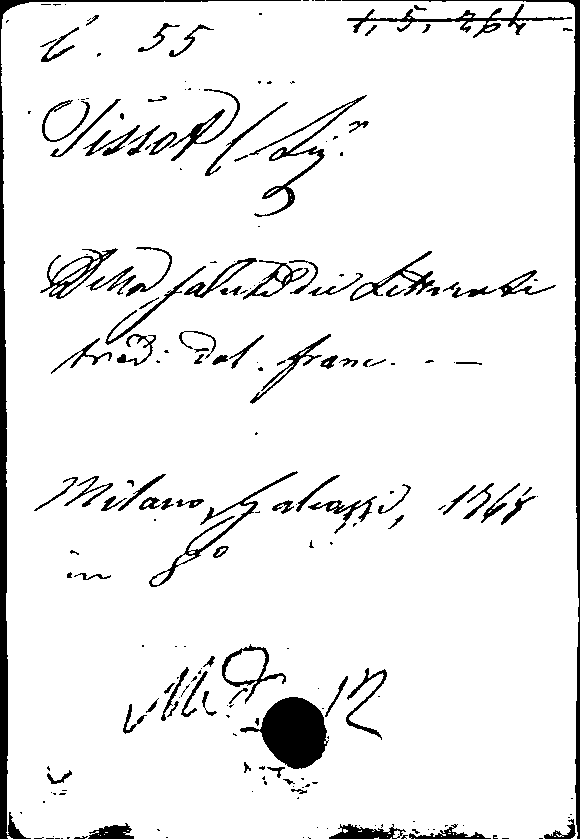 C. 55
1, 5, 264
Tissot (Sig.r
Della salute dei Letterati
trad: dal. franc. - -
Milano, Galeazzi, 1768
in 8º
Med 12